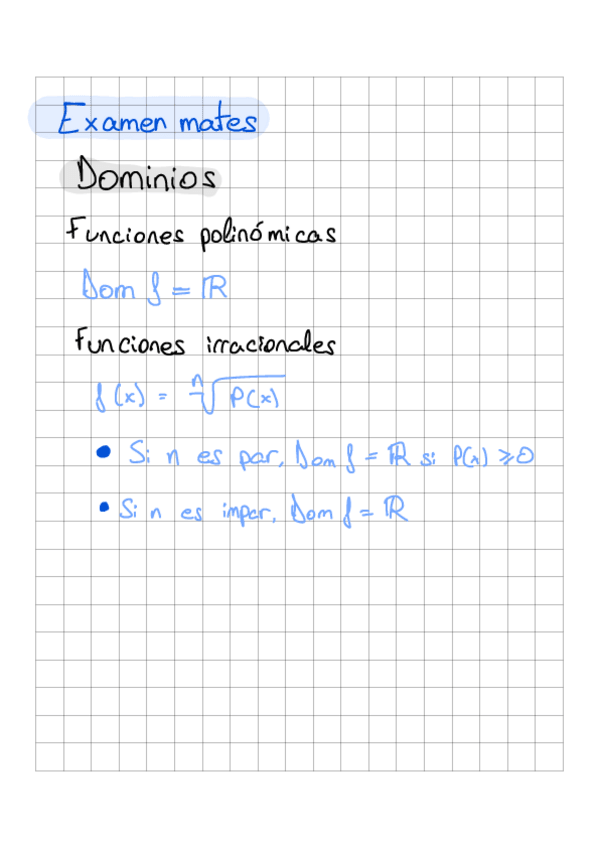 Examen mates
Dominios
Funciones polinómicas
Dom f = ℝ
Funciones irracionales
f(x) = ⁿ√P(x)
• Si n es par, Dom f = ℝ si P(x) ≥ 0
• Si n es impar, Dom f = ℝ